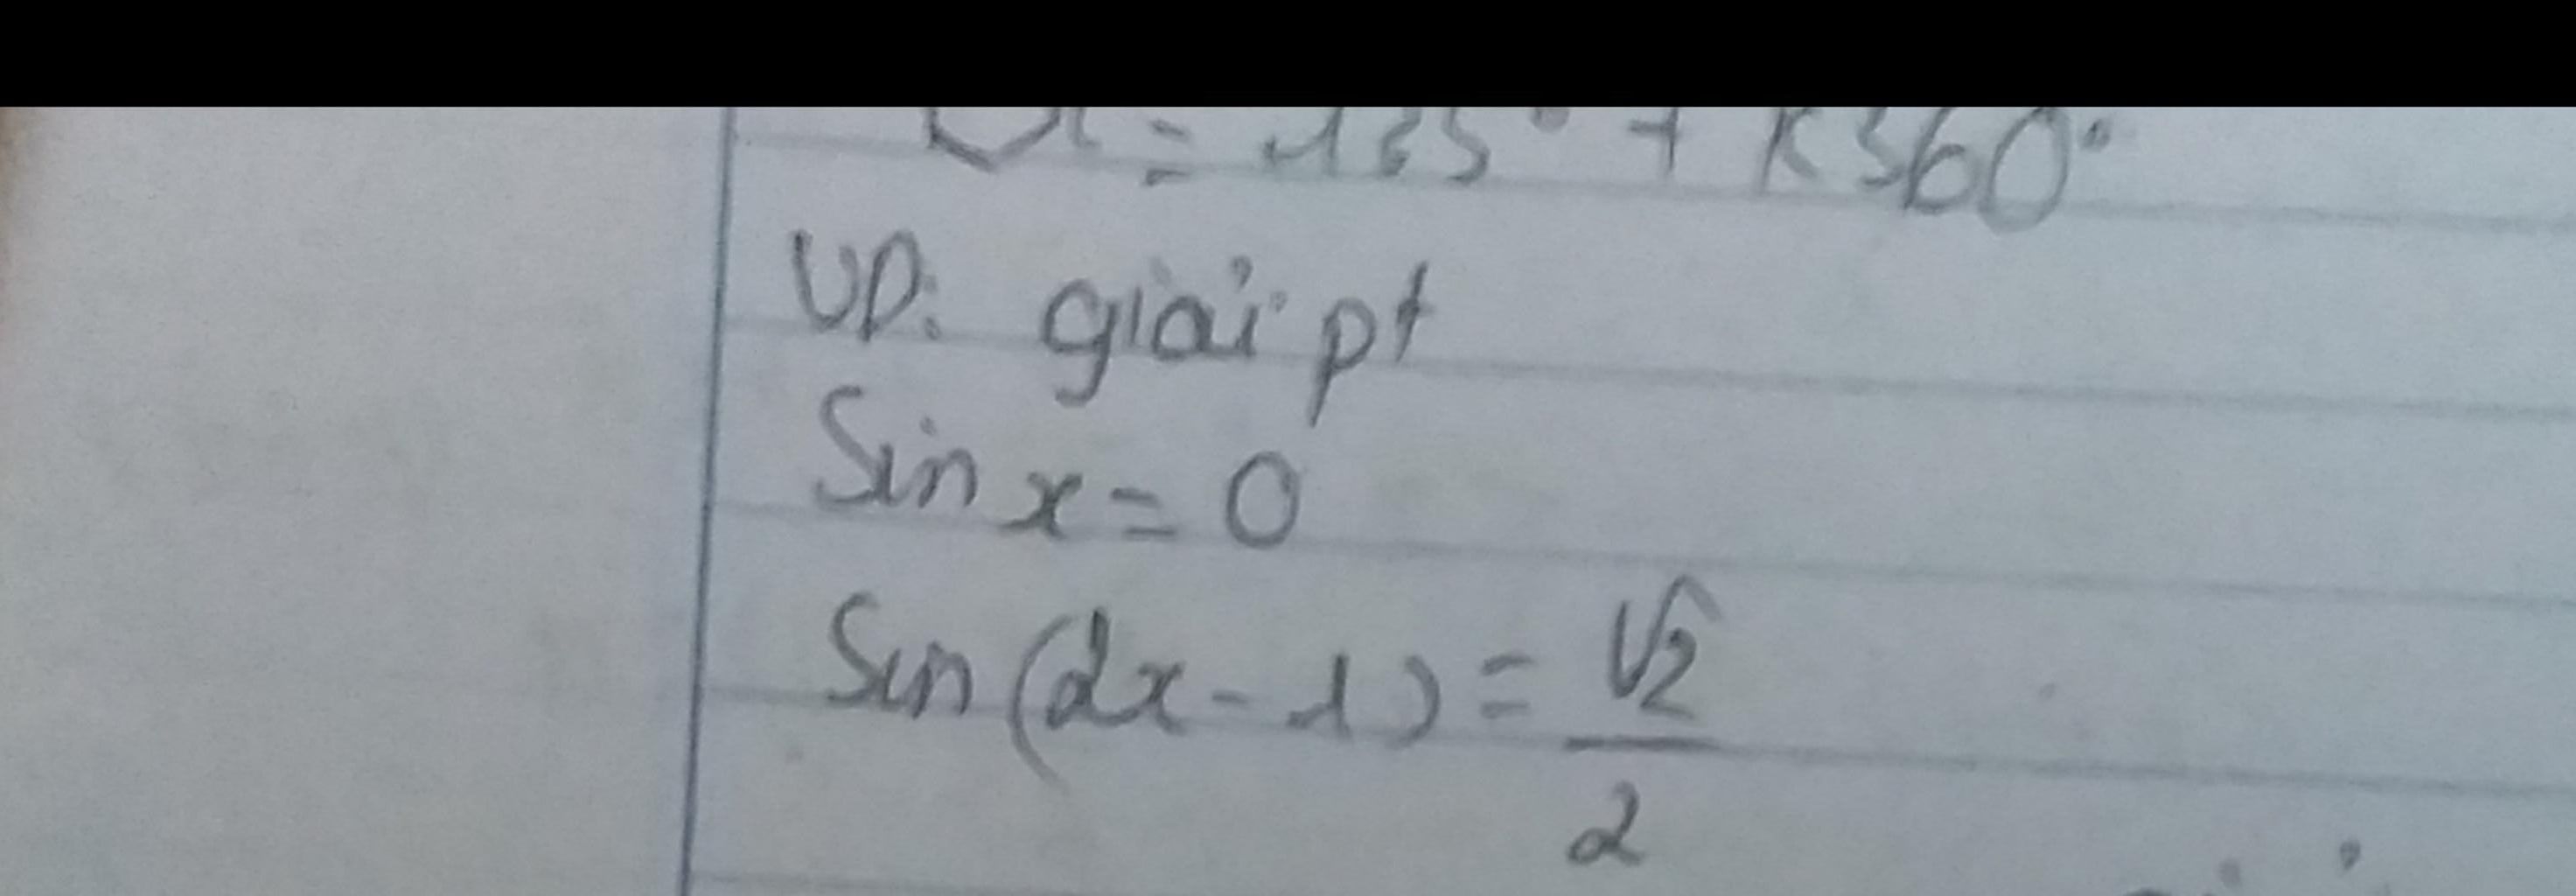 = 135° + K360°
VD: giải pt
Sin x = 0
Sin (2x - 1) = √2/2